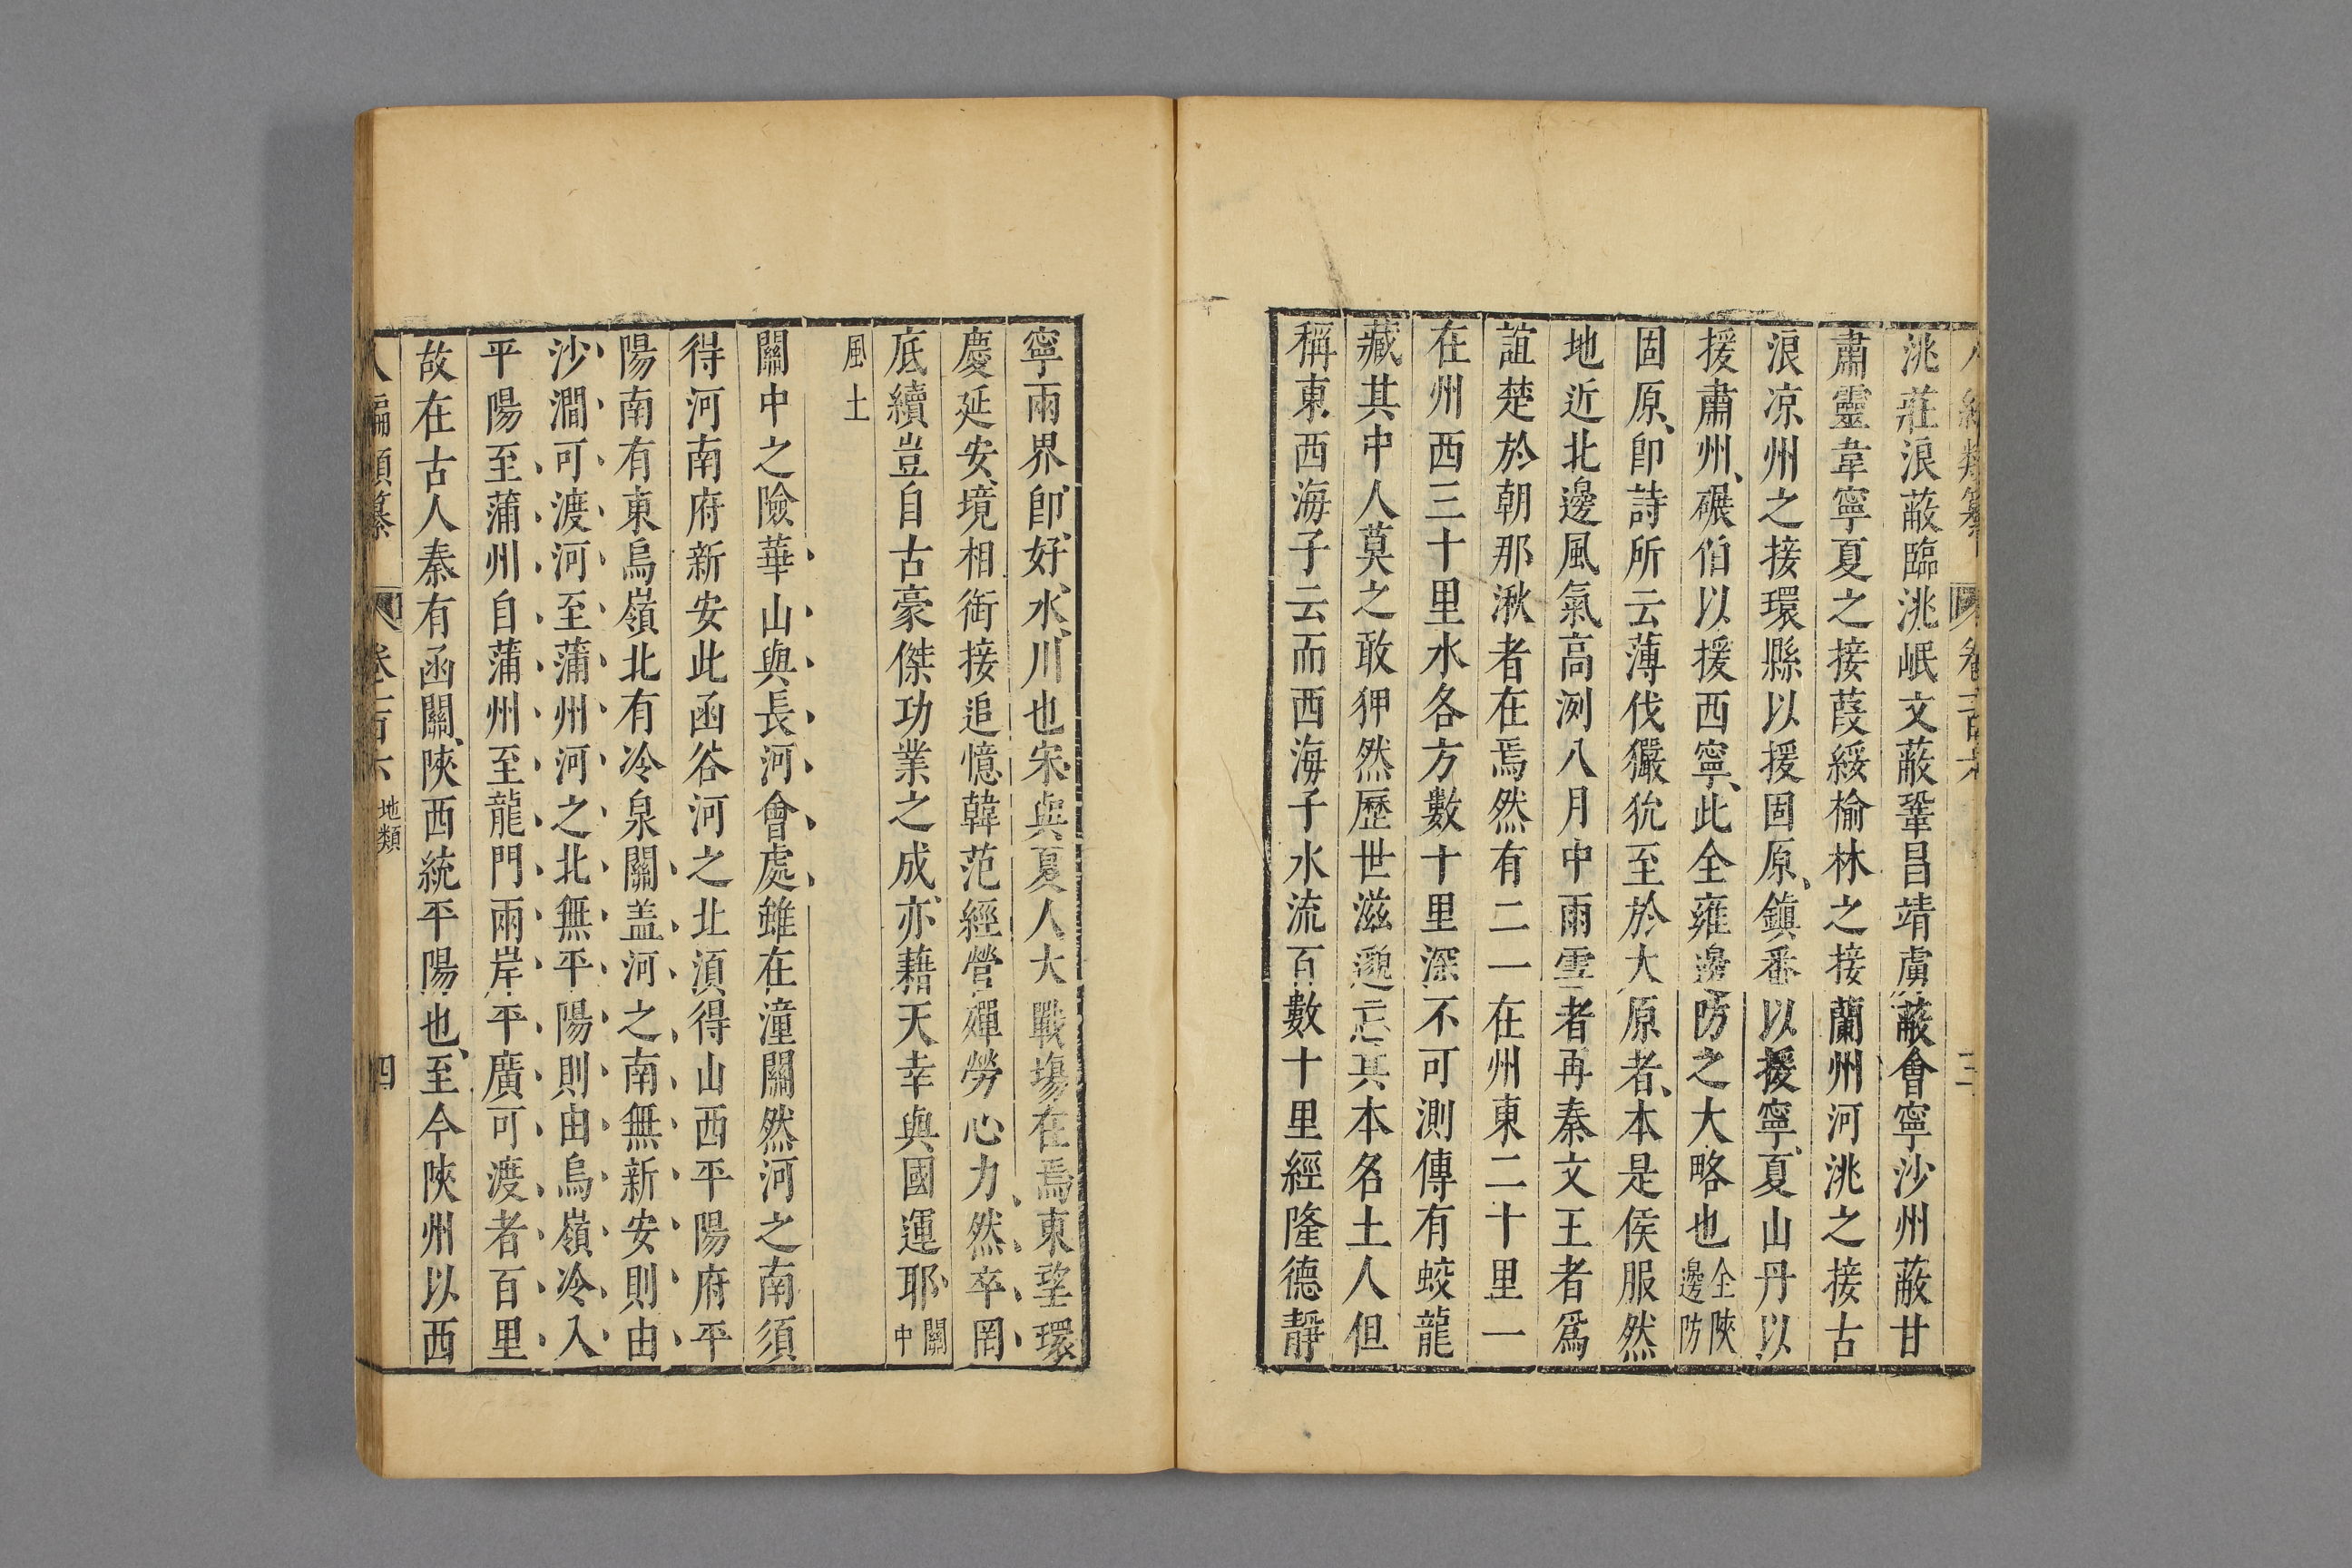 洮莊浪蔽臨洮岷文蔽鞏昌靖虜蔽會寧沙州蔽甘
肅靈韋寧夏之接葭綏榆林之接蘭州河洮之接古
浪凉州之接環縣以援固原鎮番以援寧夏山丹以
援肅州碾伯以援西寧此全雍邊防之大略也全陝邊防
固原卽詩所云薄伐玁狁至於大原者本是侯服然
地近北邊風氣高冽八月中雨雪者再秦文王者爲
誼楚於朝那湫者在焉然有二一在州東二十里一
在州西三十里水各方數十里深不可測傳有蛟龍
藏其中人莫之敢狎然歷世滋邈忘其本名土人但
稱東西海子云而西海子水流百數十里經隆德靜
寧兩界卽好水川也宋與夏人大戰塲在焉東望環
慶延安境相銜接追憶韓范經營殫勞心力然卒罔
底續豈自古豪傑功業之成亦藉天幸與國運耶關中
風土
關中之險華山與長河會處雖在潼關然河之南須
得河南府新安此函谷河之北湏得山西平陽府平
陽南有東烏嶺北有冷泉關盖河之南無新安則由
沙澗可渡河至蒲州河之北無平陽則由烏嶺冷入
平陽至蒲州自蒲州至龍門兩岸平廣可渡者百里
故在古人秦有函關陝西統平陽也至今陝州以西
八編類纂 卷一百六 地類 四